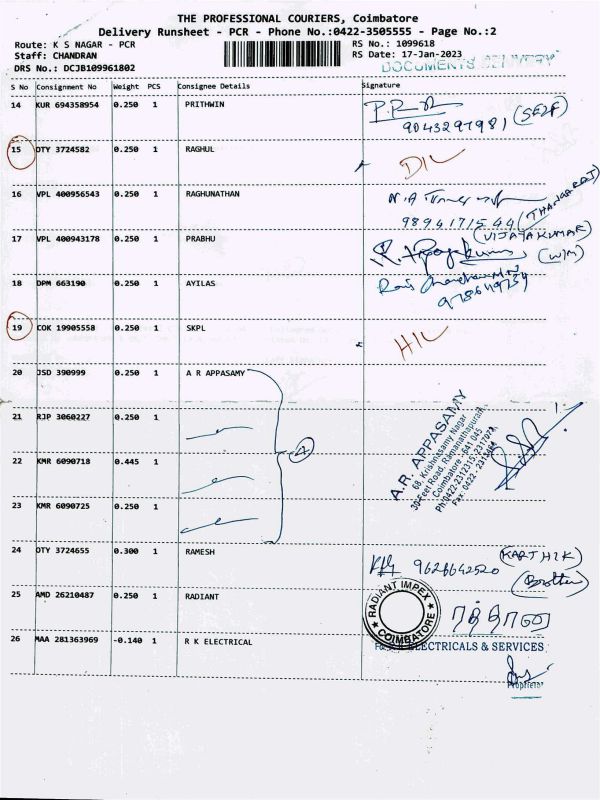 THE PROFESSIONAL COURIERS, Coimbatore
Delivery Runsheet - PCR - Phone No.:0422-3505555 - Page No.:2
Route: K S NAGAR - PCR
RS No.: 1099618
Staff: CHANDRAN
RS Date: 17-Jan-2023
DRS No.: DCJB109961802
DOCUMENTS DELIVERY
S No Consignment No Weight PCS Consignee Details Signature
14 KUR 694358954 0.250 1 PRITHWIN
(SELF)
9043297981
15 DTY 3724582 0.250 1 RAGHUL
D/L
16 VPL 400956543 0.250 1 RAGHUNATHAN
9894171544 (THANGARAJ)
17 VPL 400943178 0.250 1 PRABHU
(VIJAYAKUMAR)
18 DPM 663190 0.250 1 AYILAS
19 COK 19905558 0.250 1 SKPL
H/L
20 JSD 390999 0.250 1 A R APPASAMY
21 RJP 3060227 0.250 1
22 KMR 6090718 0.445 1
23 KMR 6090725 0.250 1
A.R. APPASAMY
68, Krishnasamy Nagar
30-Feet Road, Ramanathapuram
Coimbatore - 641 045
Ph:0422-2312315, 2317073
Fax: 0422 -
24 DTY 3724655 0.300 1 RAMESH
9626642520 (KARTHIK)
(Brother)
25 AMD 26210487 0.250 1 RADIANT
RADIANT IMPEX
COIMBATORE
26 MAA 281363969 -0.140 1 R K ELECTRICAL
ELECTRICALS & SERVICES
Proprietor